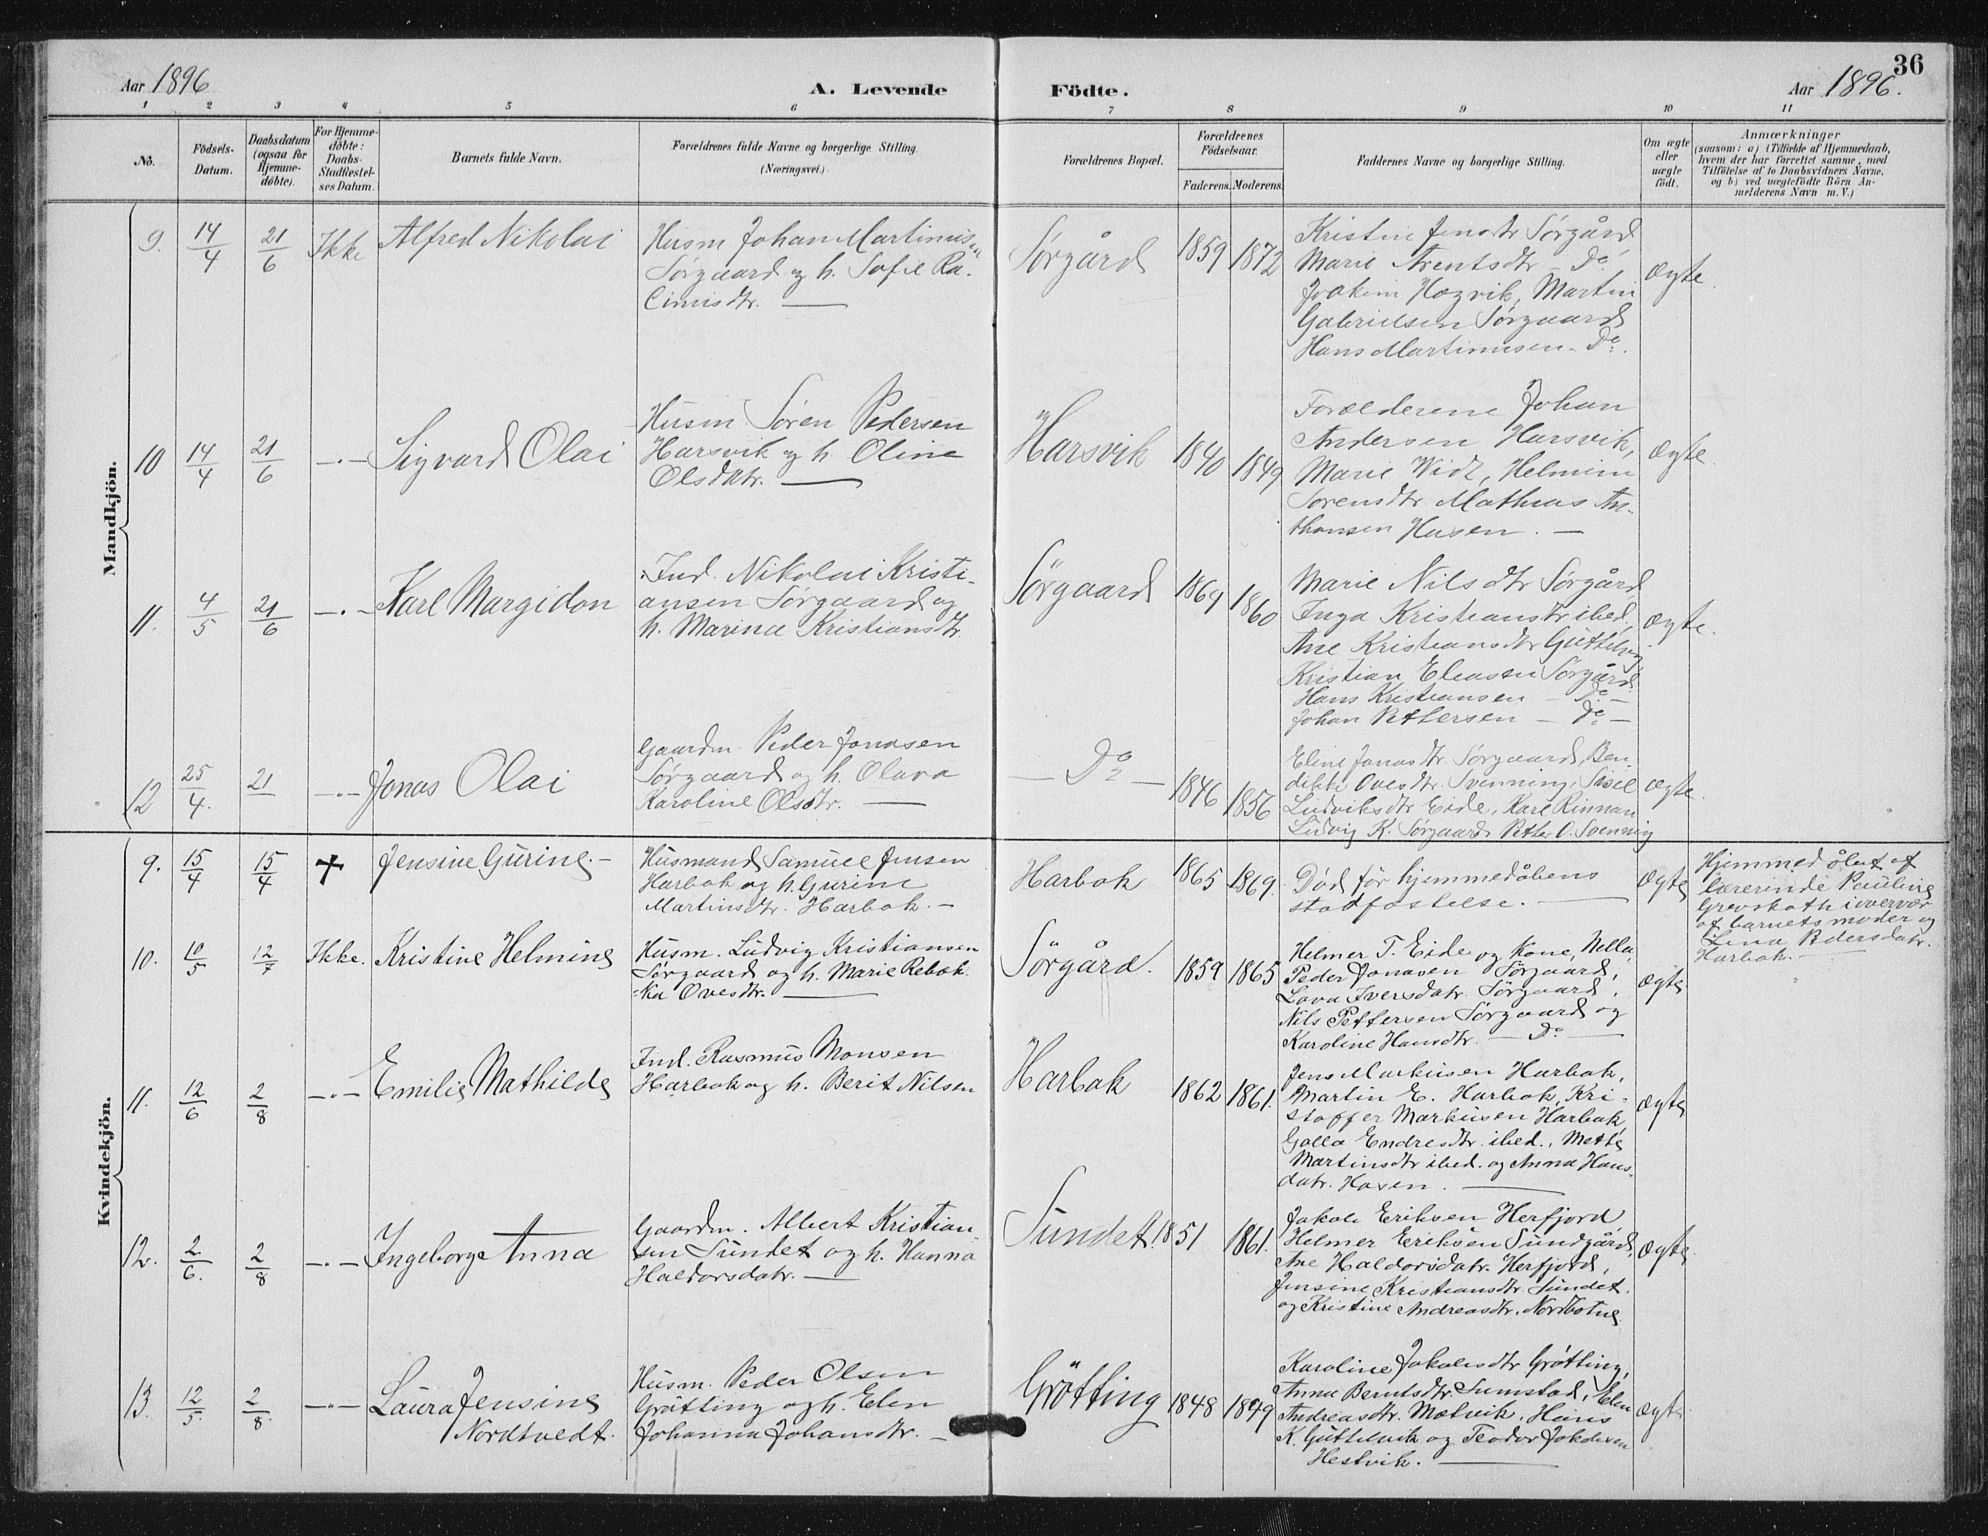 36
Aar 1896
A. Levende Födte.
Aar 1896.
1 2 3 4 5 6 7 8 9 10 11
No.
Födsels-
Datum.
Daabsdatum
(ogsaa for
Hjemme-
döbte).
For Hjemme-
döbte:
Daabs-
Stadfæstel-
ses Datum.
Barnets fulde Navn.
Forældrenes fulde Navne og borgerlige Stilling.
(Næringsvei.)
Forældrenes Bopæl.
Forældrenes
Födselsaar.
Faderens. Moderens.
Faddernes Navne og borgerlige Stilling.
Om ægte
eller
uægte
födt.
Anmærkninger
(saasom: a) i Tilfælde af Hjemmedaab,
hvem der har forrettet samme, med
Tilföielse af to Daabsvidners Navne,
og b) ved uægtefödte Börn An-
melderens Navn m. V.)
Mandkjön.
9. 14/4 21/6 Ikke Alfred Nikolai
Husm Johan Martinus-
Sørgaard og h. Sofie Ra-
Sørgård 1859 1872
Kristine Jensdtr Sørgård
Marie Arentsdtr - Do.
Joakim Hogvik, Martin
Gabrielsen Sørgaard
Hans Martinusen - Do.
ægte.
10 14/4 21/6 -"- Sigvard Olai
Husm. Søren Pedersen
Harsvik og h. Oline
Olsdatr. —
Harsvik 1840 1849
Forælderene Johan
Andersen Harsvik,
Marie Widt, Helmine
Sørensdtr Mathias An-
thonsen Hasen. —
ægte.
11. 4/5 21/6 -"- Karl Margidon
Ind. Nikolai Kristi-
ansen Sørgaard og
h. Marina Kristiansdtr.
Sørgaard 1869 1860
Marie Nilsdtr Sørgård
Inga Kristiansdtr ibed,
Ane Kristiansdtr Guttelvig
Kristian Eliassen Sørgård
Hans Kristiansen - Do -
Johan Pettersen - Do -
ægte.
12 25/4. 21 -"- Jonas Olai
Gaardm. Peder Jonasen
Sørgaard og h. Olava
Karoline Olsdtr. —
- Do - 1846 1856
Eline Jonasdtr. Sørgaard, Ben-
dikke Ovesdtr. Svenning, Sisil
Ludviksdtr Eide, Karl Rinnan
Ludvig K. Sørgaard, Petter O. Svenning
ægte.
Kvindekjön.
9. 15/4 15/4 + Jensine Gurine. -
Husmand Samuel Jensen
Harbak og h. Gurine
Martinsdtr. Harbak. -
Harbak 1865 1869.
Død før hjemmedåbens
stadfæstelse. —
ægte
Hjemmedøbt af
lærerinde Pauline
Grevskott i overvær
af barnets moder og
Lina Pedersdatr.
Harbak. —
10. 10/5 12/7 Ikke. Kristine Helmine
Husm. Ludvig Kristiansen
Sørgaard og h. Marie Rebek-
ka Ovesdtr. —
Sørgård. 1859 1865
Helmer T. Eide og Kone, Nella,
Peder Jonasen Sørgaard,
Lava Iversdatr. Sørgaard,
Nils Pettersen Sørgaard og
Karoline Hansdtr. — Do —
ægte
11. 12/6 2/8 -"- Emilie Mathilde
Ind. Rasmus Monsen
Harbak og h. Berit Nilsen
Harbak 1862 1861.
Jens Markusen Harbak,
Martin E. Harbak, Kri-
stoffer Markusen Harbak,
Golla Endresdtr. ibed., Mette
Martinsdtr ibed. og Anna Hans-
datr. Hasen. —
ægte
12. 2/6. 2/8 -"- Ingeborge Anna
Gaardm. Albert Kristian-
sen Sundet og h. Hanna
Haldorsdatr. —
Sundet. 1851 1861.
Jakob Eriksen Herfjord,
Helmer Eriksen Sundgård,
Ane Haldorsdatr. Herfjord,
Jensine Kristiansdtr Sundet.
og Kristine Andreasdtr. Nordbotne
ægte
13. 12/5 2/8. -"- Laura Jensine
Nordtvedt.
Husm. Peder Olsen
Grøtting og h. Elen
Johanna Johansdtr. —
Grøtting 1848 1849
Karoline Jakobsdtr Grøtting,
Anna Berntsdtr. Sumstad, Elen
Andreasdtr. Mælvik, Hans
K. Guttelvik og Teodor Jakobsen
Hestvik. —
ægte.